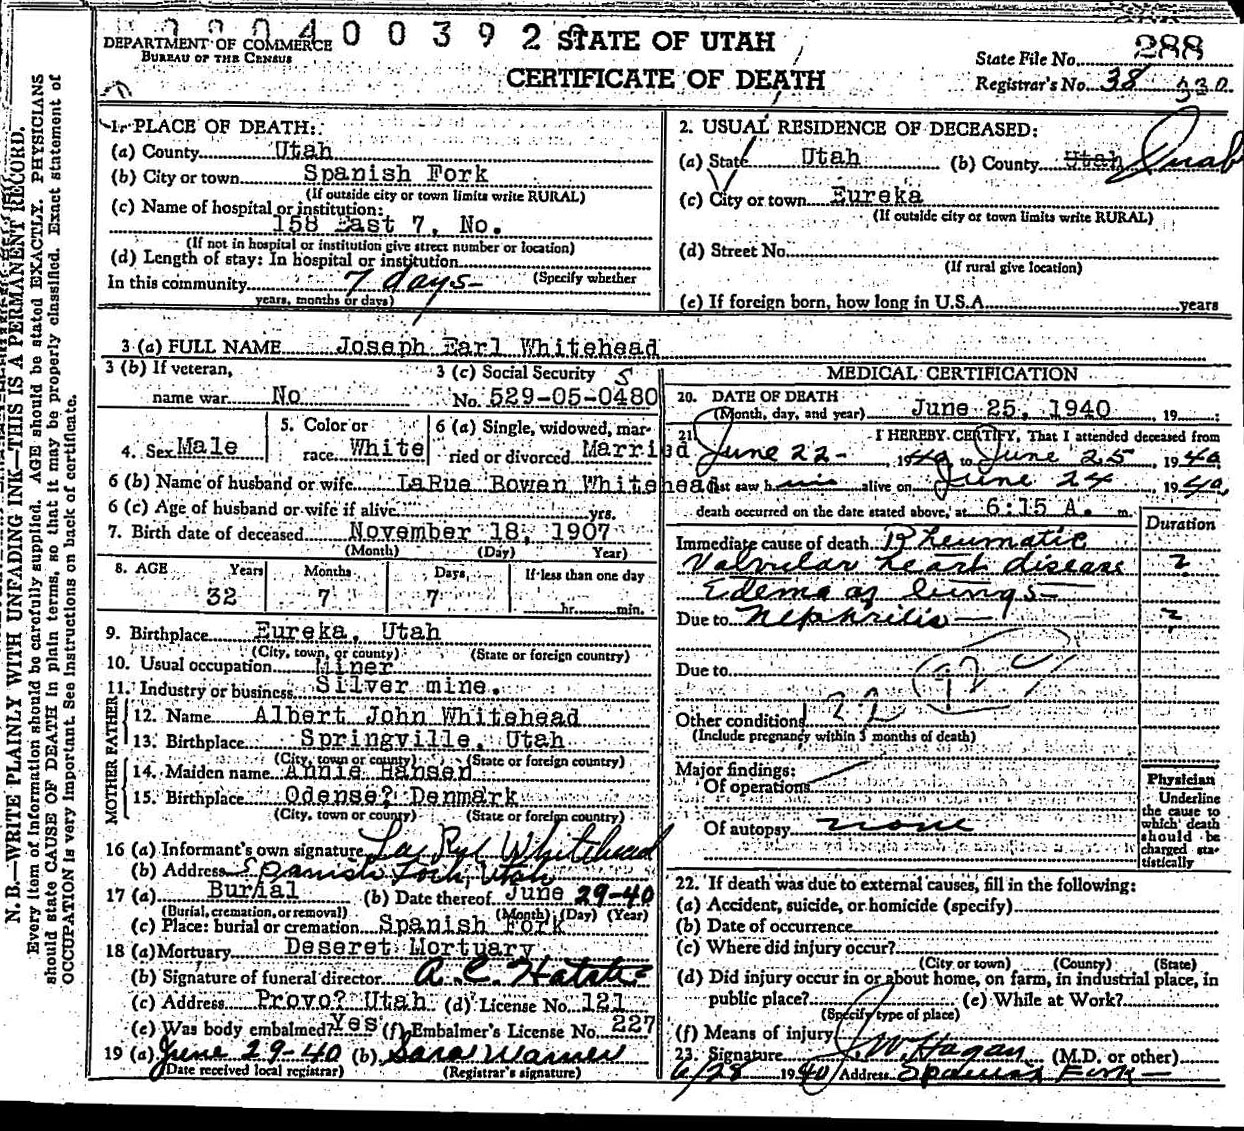 0 0 0 4 0 0 3 9 2
STATE OF UTAH
DEPARTMENT OF COMMERCE
BUREAU OF THE CENSUS
CERTIFICATE OF DEATH
State File No. 288
Registrar's No. 38 330
N. B.—WRITE PLAINLY WITH UNFADING INK—THIS IS A PERMANENT RECORD.
Every item of information should be carefully supplied. AGE should be stated EXACTLY. PHYSICIANS
should state CAUSE OF DEATH in plain terms, so that it may be properly classified. Exact statement of
OCCUPATION is very important. See instructions on back of certificate.
1. PLACE OF DEATH:
(a) County Utah
(b) City or town Spanish Fork
(If outside city or town limits write RURAL)
(c) Name of hospital or institution:
158 East 7, No.
(If not in hospital or institution give street number or location)
(d) Length of stay: In hospital or institution
(Specify whether
In this community 7 days
years, months or days)
2. USUAL RESIDENCE OF DECEASED:
(a) State Utah (b) County Utah Juab
(c) City or town Eureka
(If outside city or town limits write RURAL)
(d) Street No.
(If rural give location)
(e) If foreign born, how long in U.S.A. years
3 (a) FULL NAME Joseph Earl Whitehead
3 (b) If veteran,
name war No
3 (c) Social Security S
No. 529-05-0480
4. Sex Male
5. Color or
race White
6 (a) Single, widowed, mar-
ried or divorced Married
6 (b) Name of husband or wife LaRue Bowen Whitehead
6 (c) Age of husband or wife if alive yrs.
7. Birth date of deceased November 18, 1907
(Month) (Day) Year)
8. AGE Years Months Days If less than one day
32 7 7 hr. min.
9. Birthplace Eureka, Utah
(City, town, or county) (State or foreign country)
10. Usual occupation Miner
11. Industry or business Silver mine.
FATHER
12. Name Albert John Whitehead
13. Birthplace Springville, Utah
(City, town or county) (State or foreign country)
MOTHER
14. Maiden name Annie Hansen
15. Birthplace Odense? Denmark
(City, town or county) (State or foreign country)
16 (a) Informant's own signature La Rue Whitehead
(b) Address Spanish Fork, Utah
17 (a) Burial (b) Date thereof June 29-40
(Burial, cremation, or removal) (Month) (Day) (Year)
(c) Place: burial or cremation Spanish Fork
18 (a) Mortuary Deseret Mortuary
(b) Signature of funeral director A. C. Hatch
(c) Address Provo? Utah (d) License No. 121
(e) Was body embalmed? Yes (f) Embalmer's License No. 227
19 (a) June 29-40 (b) Sara Warner
(Date received local registrar) (Registrar's signature)
MEDICAL CERTIFICATION
20. DATE OF DEATH
(Month, day, and year) June 25, 1940 , 19 :
21. I HEREBY CERTIFY, That I attended deceased from
June 22- 1940 to June 25, 1940
last saw him alive on June 24 1940,
death occurred on the date stated above, at 6:15 A. m.
Duration
Immediate cause of death Rheumatic
Valvular heart disease ?
Edema of lungs
Due to Nephritis ?
Due to
92
Other conditions 122
(Include pregnancy within 3 months of death)
Major findings:
Of operations
Of autopsy none
Physician
Underline
the cause to
which death
should be
charged sta-
tistically
22. If death was due to external causes, fill in the following:
(a) Accident, suicide, or homicide (specify)
(b) Date of occurrence
(c) Where did injury occur?
(City or town) (County) (State)
(d) Did injury occur in or about home, on farm, in industrial place, in
public place? (e) While at Work?
(Specify type of place)
(f) Means of injury
23. Signature J. W. Hagan (M.D. or other)
6/28 1940 Address Spanish Fork